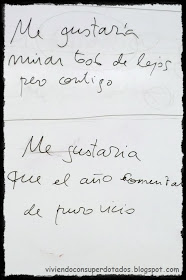 Me gustaría
mirar todo de lejos
pero contigo
Me gustaria
Que el año
de puro vicio
viviendoconsuperdotados.blogspot.com